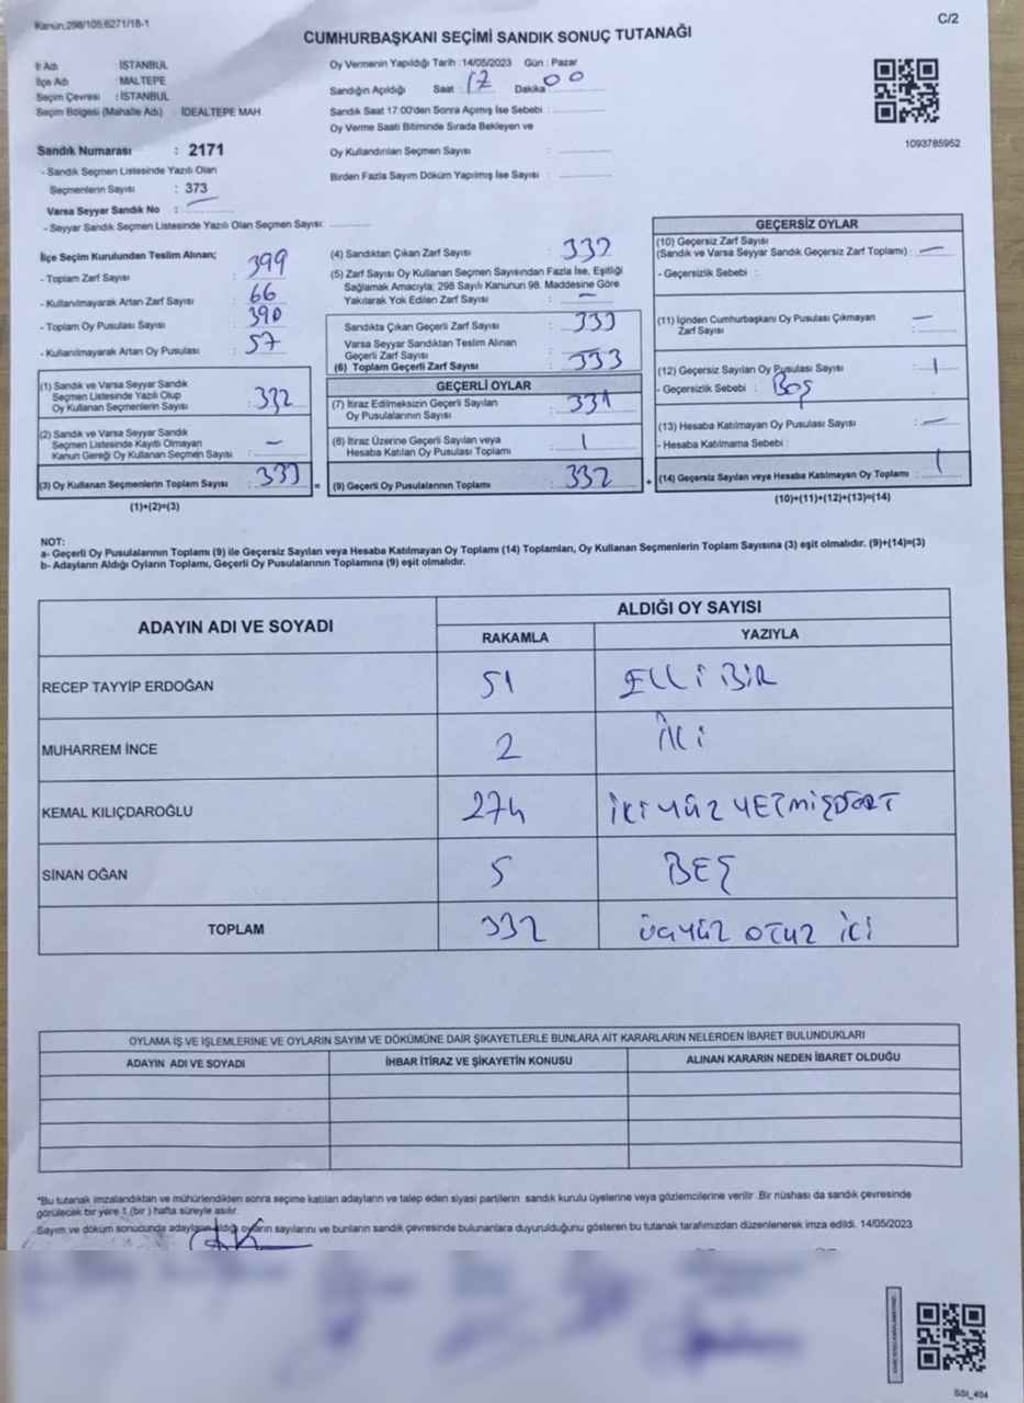 Kanun.298/105,6271/18-1
C/2
CUMHURBAŞKANI SEÇİMİ SANDIK SONUÇ TUTANAĞI
İl Adı : İSTANBUL
İlçe Adı : MALTEPE
Seçim Çevresi : İSTANBUL
Seçim Bölgesi (Mahalle Adı) : İDEALTEPE MAH
Sandık Numarası : 2171
- Sandık Seçmen Listesinde Yazılı Olan
Seçmenlerin Sayısı : 373
Varsa Seyyar Sandık No :
- Seyyar Sandık Seçmen Listesinde Yazılı Olan Seçmen Sayısı:
Oy Vermenin Yapıldığı Tarih :14/05/2023 Gün : Pazar
Sandığın Açıldığı Saat : 17 Dakika 00
Sandık Saat 17:00'den Sonra Açmış İse Sebebi :
Oy Verme Saati Bitiminde Sırada Bekleyen ve
Oy Kullandırılan Seçmen Sayısı :
Birden Fazla Sayım Döküm Yapılmış İse Sayısı :
1093785952
İlçe Seçim Kurulundan Teslim Alınan;
- Toplam Zarf Sayısı : 399
- Kullanılmayarak Artan Zarf Sayısı : 66
- Toplam Oy Pusulası Sayısı : 390
- Kullanılmayarak Artan Oy Pusulası : 57
(1) Sandık ve Varsa Seyyar Sandık
Seçmen Listesinde Yazılı Olup
Oy Kullanan Seçmenlerin Sayısı : 332
(2) Sandık ve Varsa Seyyar Sandık
Seçmen Listesinde Kayıtlı Olmayan
Kanun Gereği Oy Kullanan Seçmen Sayısı : -
(3) Oy Kullanan Seçmenlerin Toplam Sayısı : 333
(1)+(2)=(3)
(4) Sandıktan Çıkan Zarf Sayısı : 333
(5) Zarf Sayısı Oy Kullanan Seçmen Sayısından Fazla İse, Eşitliği
Sağlamak Amacıyla; 298 Sayılı Kanunun 98. Maddesine Göre
Yakılarak Yok Edilen Zarf Sayısı : -
Sandıkta Çıkan Geçerli Zarf Sayısı : 333
Varsa Seyyar Sandıktan Teslim Alınan
Geçerli Zarf Sayısı :
(6) Toplam Geçerli Zarf Sayısı : 333
GEÇERLİ OYLAR
(7) İtiraz Edilmeksizin Geçerli Sayılan
Oy Pusulalarının Sayısı : 331
(8) İtiraz Üzerine Geçerli Sayılan veya
Hesaba Katılan Oy Pusulası Toplamı : 1
= (9) Geçerli Oy Pusulalarının Toplamı : 332
GEÇERSİZ OYLAR
(10) Geçersiz Zarf Sayısı
(Sandık ve Varsa Seyyar Sandık Geçersiz Zarf Toplamı) : -
- Geçersizlik Sebebi :
(11) İçinden Cumhurbaşkanı Oy Pusulası Çıkmayan
Zarf Sayısı : -
(12) Geçersiz Sayılan Oy Pusulası Sayısı : 1
- Geçersizlik Sebebi : Boş
(13) Hesaba Katılmayan Oy Pusulası Sayısı : -
- Hesaba Katılmama Sebebi :
+ (14) Geçersiz Sayılan veya Hesaba Katılmayan Oy Toplamı : 1
(10)+(11)+(12)+(13)=(14)
NOT:
a- Geçerli Oy Pusulalarının Toplamı (9) ile Geçersiz Sayılan veya Hesaba Katılmayan Oy Toplamı (14) Toplamları, Oy Kullanan Seçmenlerin Toplam Sayısına (3) eşit olmalıdır. (9)+(14)=(3)
b- Adayların Aldığı Oyların Toplamı, Geçerli Oy Pusulalarının Toplamına (9) eşit olmalıdır.
ADAYIN ADI VE SOYADI
ALDIĞI OY SAYISI
RAKAMLA YAZIYLA
RECEP TAYYİP ERDOĞAN 51 ELLİ BİR
MUHARREM İNCE 2 İKİ
KEMAL KILIÇDAROĞLU 274 İKİ YÜZ YETMİŞDÖRT
SİNAN OĞAN 5 BEŞ
TOPLAM 332 ÜÇYÜZ OTUZ İKİ
OYLAMA İŞ VE İŞLEMLERİNE VE OYLARIN SAYIM VE DÖKÜMÜNE DAİR ŞİKAYETLERLE BUNLARA AİT KARARLARIN NELERDEN İBARET BULUNDUKLARI
ADAYIN ADI VE SOYADI İHBAR İTİRAZ VE ŞİKAYETİN KONUSU ALINAN KARARIN NEDEN İBARET OLDUĞU
*Bu tutanak imzalandıktan ve mühürlendikten sonra seçime katılan adayların ve talep eden siyasi partilerin sandık kurulu üyelerine veya gözlemcilerine verilir .Bir nüshası da sandık çevresinde
görülecek bir yere 1 (bir ) hafta süreyle asılır.
-Sayım ve döküm sonucunda adayların aldığı oyların sayılarını ve bunların sandık çevresinde bulunanlara duyurulduğunu gösteren bu tutanak tarafımızdan düzenlenerek imza edildi. 14/05/2023